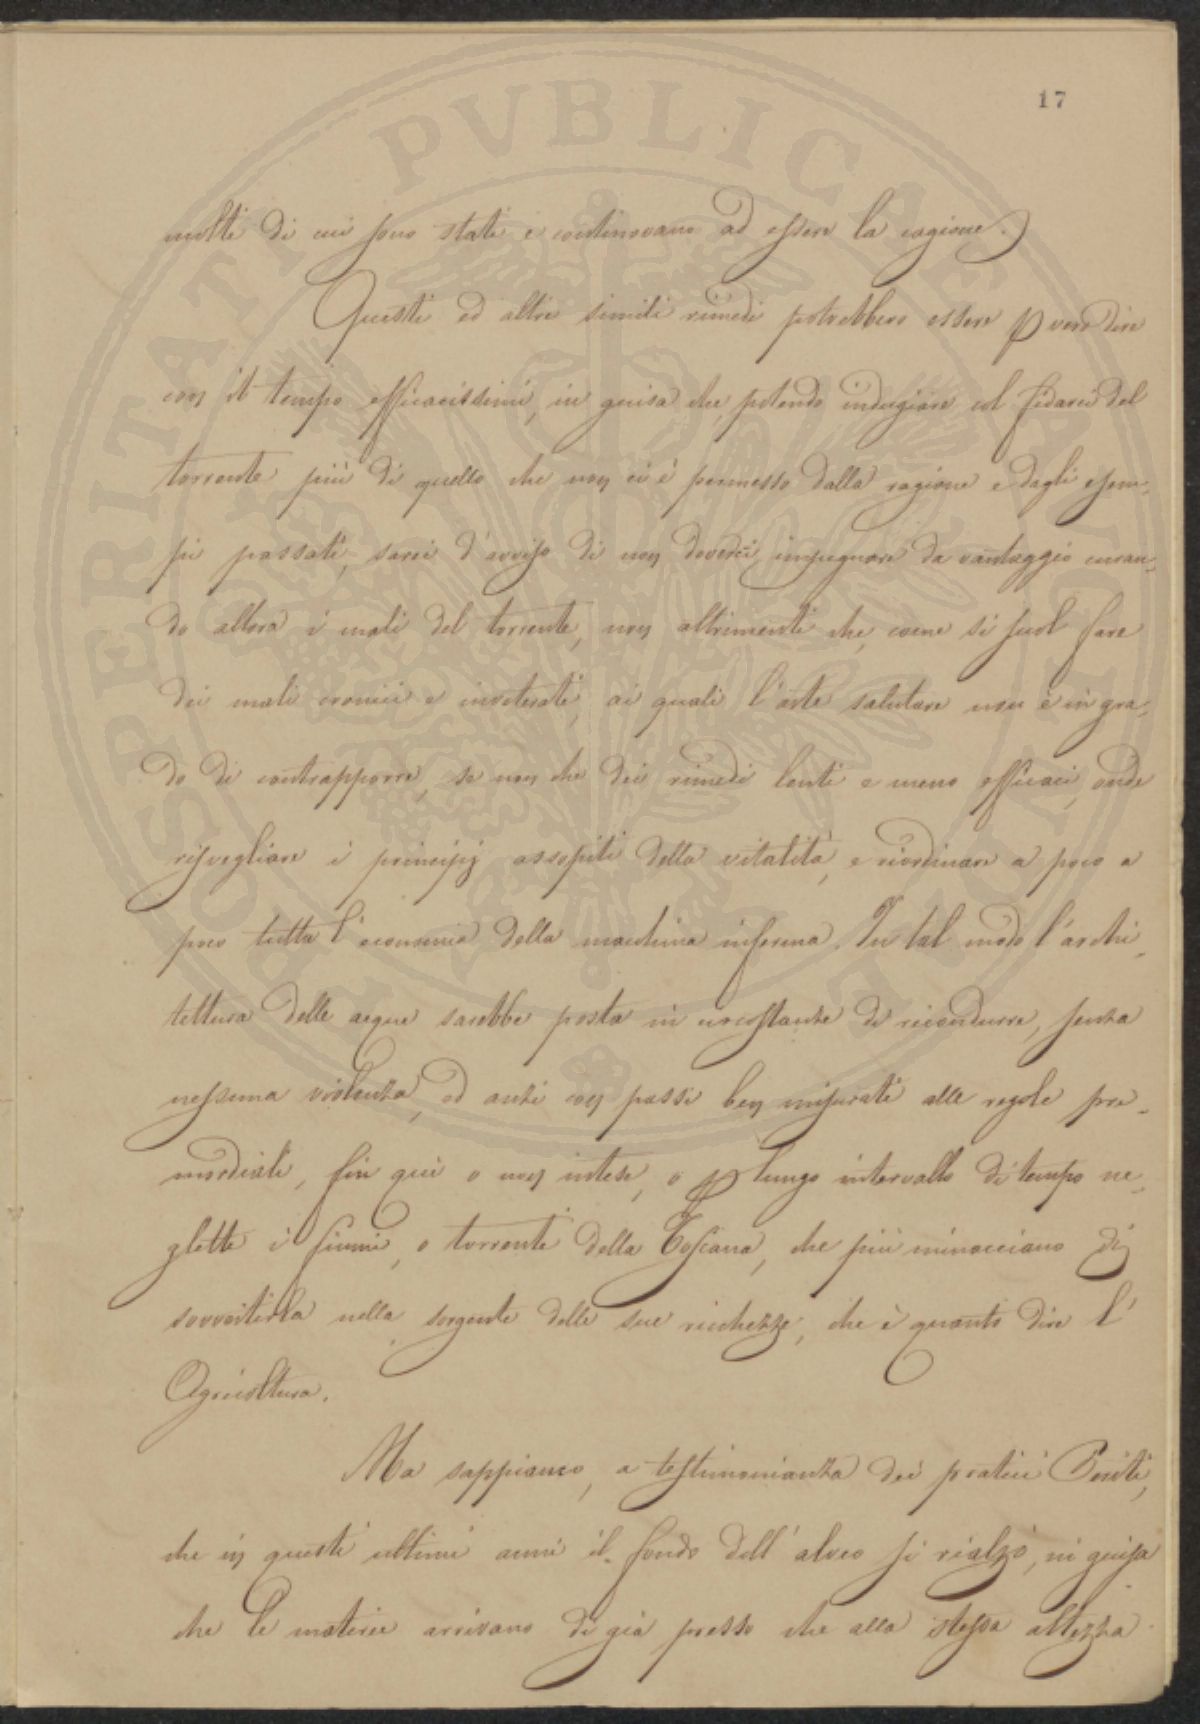 17
PROSPERITATI PVBLICAE AVGENDAE
molti di cui sono stati e continovano ad essere la cagione.)
Questi ed altri simili rimedi potrebbero essere p vero dire
con il tempo efficacissimi, in guisa che, potendo indugiare col fidarci del
torrente più di quello che non ci è permesso dalla ragione e dagli esem-
pi passati, sarei d'avviso di non doverci impegnare da vantaggio curan-
do allora i mali del torrente, non altrimenti che, come si suol fare
dei mali cronici e inveterati, ai quali l'arte salutare non è in gra-
do di contrapporre, se non che dei rimedi lenti e meno efficaci, onde
risvegliare i principj assopiti della vitalità, e riordinare a poco a
poco tutta l'economia della macchina inferma. In tal modo l'archi-
tettura delle acque sarebbe posta in circostanze di ricondurre, senza
nessuna violenza, ed anzi con passi ben misurati alle regole pri-
mordiali, fin quì o non intese, o p lungo intervallo di tempo ne-
glette i fiumi, o torrenti della Toscana, che più minacciano di
sovvertirla nella sorgente delle sue ricchezze, che è quanto dire l'
Agricoltura.
Ma sappiamo, a testimonianza dei pratici Periti,
che in questi ultimi anni il fondo dell'alveo si rialzò, in guisa
che le materie arrivano di già presso che alla stessa altezza